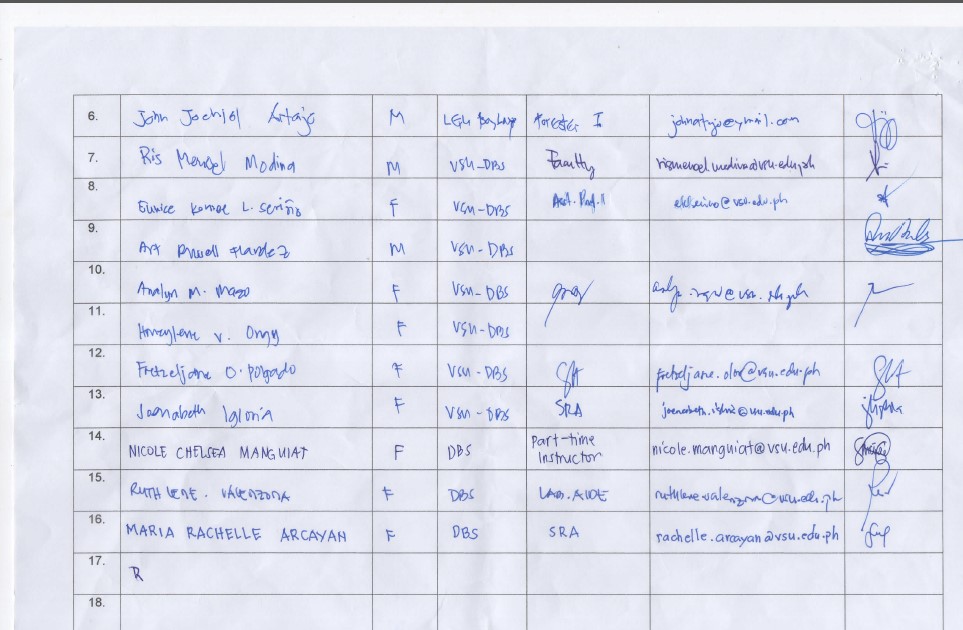 6. John Jochiel Artajo M LGU Baybay Forester I johnatujo@ymail.com
7. Ris Menoel Modina M VSU-DBS Faculty rismenoel.modina@vsu.edu.ph
8. Eunice Kamae L. Seriño F VSU-DBS Asst. Prof. II
9. Art Russell Flandez M VSU-DBS
10. Analyn M. Mazo F VSU-DBS
11. V. F VSU-DBS
12. Fretzeljane O. Pogado F VSU-DBS fretzeljane.olor@vsu.edu.ph
13. Joenabeth Igloria F VSU-DBS SRA
14. NICOLE CHELSEA MANGUIAT F DBS Part-time
Instructor nicole.manguiat@vsu.edu.ph
15. RUTHLENE. VALENZONA F DBS LAB. AIDE ruthlene.valenzona@vsu.edu.ph
16. MARIA RACHELLE ARCAYAN F DBS SRA rachelle.arcayan@vsu.edu.ph
17. R
18.